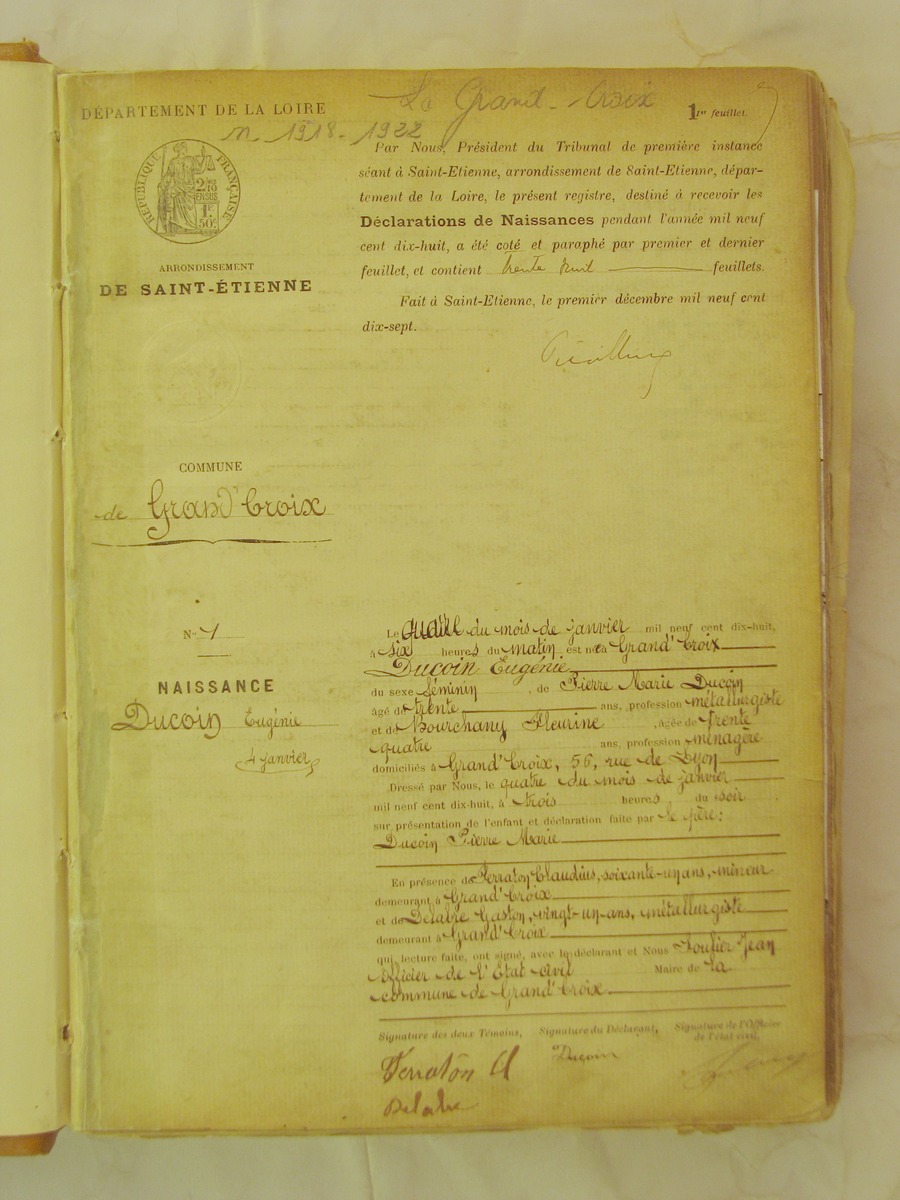 DÉPARTEMENT DE LA LOIRE
La Grand-Croix
1er feuillet.
N. 1918-1922
RÉPUBLIQUE FRANÇAISE
2/10 EN SUS
1F 50c
ARRONDISSEMENT
DE SAINT-ÉTIENNE
Par Nous, Président du Tribunal de première instance
séant à Saint-Etienne, arrondissement de Saint-Etienne, dépar-
tement de la Loire, le présent registre, destiné à recevoir les
Déclarations de Naissances pendant l'année mil neuf
cent dix-huit, a été coté et paraphé par premier et dernier
feuillet, et contient trente huit feuillets.
Fait à Saint-Etienne, le premier décembre mil neuf cent
dix-sept.
COMMUNE
de Grand'Croix
N° 1
NAISSANCE
Ducoin Eugénie
4 janvier
Le quatre du mois de janvier mil neuf cent dix-huit,
à six heures du matin est née à Grand'Croix
Ducoin Eugénie
du sexe féminin, de Pierre Marie Ducoin
âgé de trente ans, profession métallurgiste
et de Bourchany Fleurine, âgée de trente
quatre ans, profession ménagère
domiciliés à Grand'Croix, 56, rue de Lyon
Dressé par Nous, le quatre du mois de janvier
mil neuf cent dix-huit, à trois heures du soir
sur présentation de l'enfant et déclaration faite par le père:
Ducoin Pierre Marie
En présence de Ferraton Claudius, soixante-un ans, mineur
demeurant à Grand'Croix
et de Delabre Gaston, vingt-un ans, métallurgiste
demeurant à Grand'Croix
qui, lecture faite, ont signé, avec le déclarant et Nous Jean
Officier de l'Etat civil Maire de la
commune de Grand'Croix
Signature des deux Témoins, Signature du Déclarant, Signature de l'Officier
de l'état civil,
Ferraton Cl Ducoin
Delabre